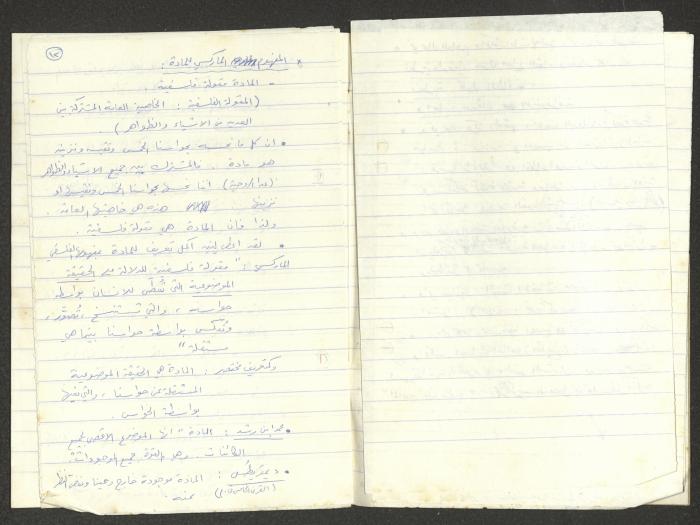 ١٢
* المفهوم الماركسي للمادة :
- المادة مقولة فلسفية .
(المقولة الفلسفية : الخاصية العامة المشتركة بين
العديد من الاشياء والظواهر) .
• ان كل ما نحسه بحواسنا الخمس ونقيسه ونزينه
هو مادة .. فالمشترك بين جميع الاشياء والظواهر
اننا نحسها بحواسنا الخمس ونقيسها او
نزينها هذه هي خاصيتها العامة .
ولذا فان المادة هي مقولة فلسفية .
• لقد اعطى لينين اكمل تعريف للمادة الفلسفي
الماركسي : " مقولة فلسفية للدلالة على الحقيقة
الموضوعية التي تُعطى للانسان بواسطة
حواسه ، والتي تستنسخ ، تُصوَّر ،
وتُعكس بواسطة حواسنا بينما هي
مستقلة "
وكتعريف مختصر : المادة هي الحقيقة الموضوعية
المستقلة عن حواسنا ، والتي نعيها
بواسطة الحواس .
• ابن رشد : المادة " انها الموضوع الاقصى لجميع
الكائنات .. وهي القوة لجميع الموجودات "
• ديمقريطس : المادة موجودة خارج وعينا وبغض النظر
(القرن الخامس ق.م) عنه